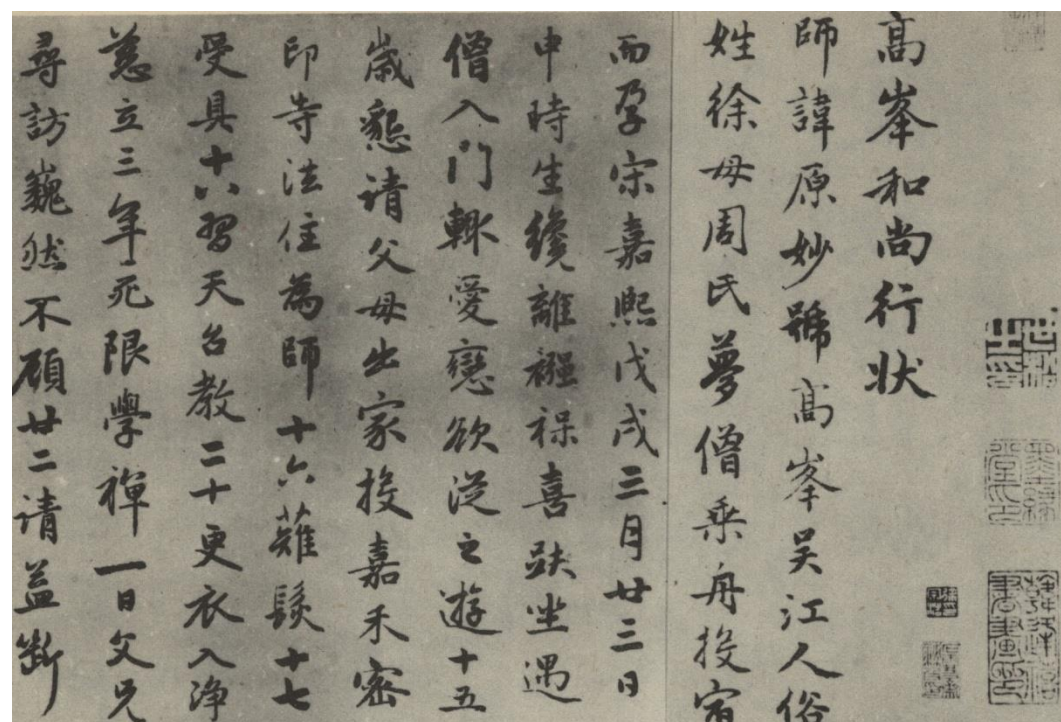 高峯和尚行状
師諱原妙號高峯吴江人俗
姓徐母周氏夢僧乘舟投宿
而孕宋嘉熙戊戌三月廿三日
申時生纔離襁褓喜趺坐遇
僧入門輙愛戀欲從之遊十五
嵗懇请父母出家投嘉禾密
印寺法住為師十六薙髮十七
受具十八習天台教二十更衣入浄
慈立三年死限學禪一日父兄
尋訪巍然不顧廿二请益斷